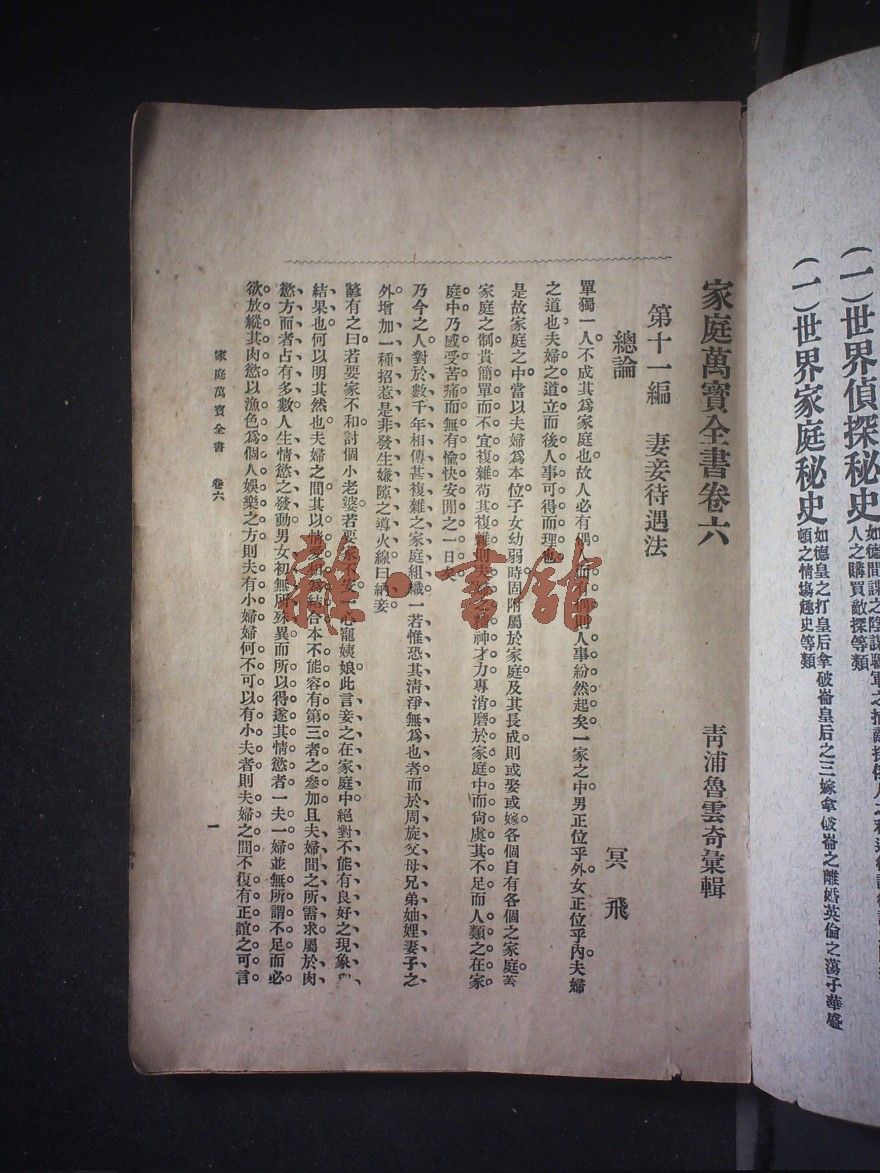 (一)世界偵探秘史
人之購買敵探等類
(一)世界家庭秘史
如德皇之打皇后拿破崙皇后之三嫁拿破崙之離婚英倫之蕩子華盛
頓之情
趣史等類
家庭萬寶全書卷六
青浦魯雲奇彙輯
第十一編 妻妾待遇法
總論
冥飛
單獨一人不成其爲家庭也故人必有偶
而有偶則人事紛然起矣一家之中男正位乎外女正位乎內夫婦
之道也夫婦之道立而後人事可得而理也
是故家庭之中當以夫婦爲本位子女幼弱時固附屬於家庭及其長成則或娶或嫁各個自有各個之家庭
家庭之制貴簡單而不宜複雜苟其複雜則夫
神才力專消磨於家庭中而尙虞其不足而人類之在家
庭中乃感受苦痛而無有愉快安閒之一日矣
乃今之人對於數千年相傳甚複雜之家庭組織一若惟恐其淸淨無爲也者而於周旋父母兄弟妯娌妻子之
外增加一種招惹是非發生嫌隙之導火線曰納妾
諺有之曰若要家不和討個小老婆若要家不安一心寵姨娘此言妾之在家庭中絕對不能有良好之現象
結果也何以明其然也夫婦之間其以情愛相爲結合本不能容有第三者之參加且夫婦間之所需求屬於肉
慾方面者占有多數人生情慾之發動男女初無所殊異而所以得遂其情慾者一夫一婦並無所謂不足而必
欲放縱其肉慾以漁色爲個人娛樂之方則夫有小婦婦何不可以有小夫者則夫婦之間不復有正誼之可言
家庭萬寶全書 卷六
一
雜·書館